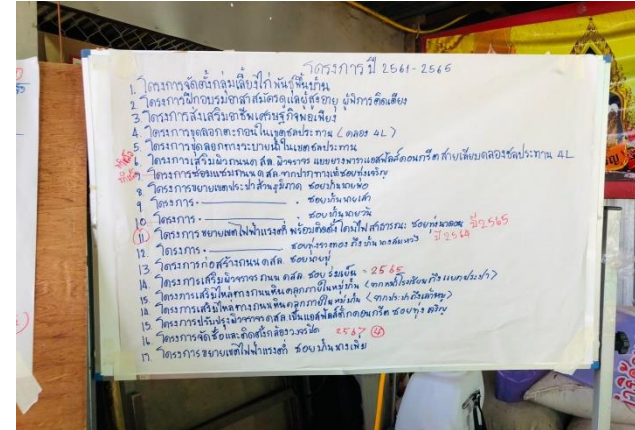 โครงการ ปี 2561-2565
1. โครงการจัดตั้งกลุ่มเลี้ยงไก่พันธุ์พื้นบ้าน
2. โครงการฝึกอบรมอาสาสมัครดูแลผู้สูงอายุ ผู้พิการติดเตียง
3. โครงการส่งเสริมอาชีพเศรษฐกิจพอเพียง
4. โครงการขุดลอกตะกอนในเขตชลประทาน (คลอง 4L)
5. โครงการขุดลอกทางระบายน้ำในเขตชลประทาน
6. โครงการเสริมผิวถนน คสล. ผิวจราจร แบบยางพาราแอสฟัลส์คอนกรีต สายเลียบคลองชลประทาน 4L
7. โครงการซ่อมแซมถนน คสล. จากปากทางเข้าซอยทุ่งเจริญ
8. โครงการขยายเขตประปาส่วนภูมิภาค ซอยบ้านนายพ่อ
9. โครงการ. ซอยบ้านนายเล่า
10. โครงการ. ซอยบ้านนายวัน
11. โครงการ ขยายเขตไฟฟ้าแรงต่ำ พร้อมติดตั้งโคมไฟสาธารณะ ซอยทุ่ง ปี 2565
12. โครงการ. ซอยทุ่งรวงทอง ถึงบ้านนาง ปี 2564
13. โครงการก่อสร้างถนน คสล. ซอย
14. โครงการเสริมผิวจราจร ถนน คสล. ซอย ร่มเย็น - 2565
15. โครงการเสริมไหล่ทางถนนหินคลุกภายในหมู่บ้าน (จากหน้าโรงเรียนถึงแยกประปา)
14. โครงการเสริมไหล่ทางถนนหินคลุกภายในหมู่บ้าน (จากประปาถึง
15. โครงการปรับปรุงผิวจราจร คสล. เป็นแอสฟัลส์ติกคอนกรีต ซอยทุ่งเจริญ
16. โครงการจัดซื้อและติดตั้งกล้องวงจรปิด 2567
17. โครงการขยายเขตไฟฟ้าแรงต่ำ ซอยบ้านนางเพ็ญ